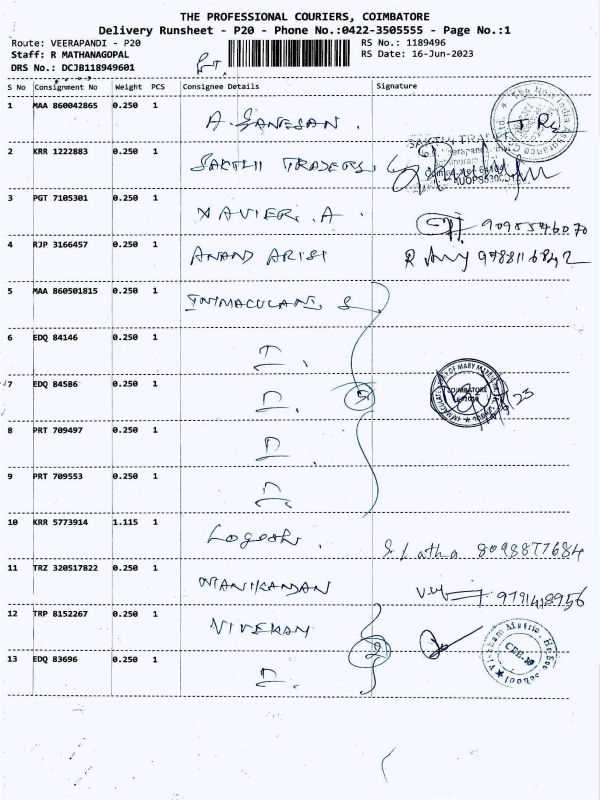 THE PROFESSIONAL COURIERS, COIMBATORE
Delivery Runsheet - P20 - Phone No.:0422-3505555 - Page No.:1
Route: VEERAPANDI - P20
RS No.: 1189496
Staff: R MATHANAGOPAL
RS Date: 16-Jun-2023
DRS No.: DCJB118949601
S No Consignment No Weight PCS Consignee Details Signature
1 MAA 860042865 0.250 1 A. GANESAN.
2 KRR 1222883 0.250 1 SAKTHI TRADERS
3 PGT 7105301 0.250 1 XAVIER. A 9095546070
4 RJP 3166457 0.250 1 ANAND ARISI 9788116842
5 MAA 860501815 0.250 1
6 EDQ 84146 0.250 1
7 EDQ 84586 0.250 1 5
8 PRT 709497 0.250 1
9 PRT 709553 0.250 1
10 KRR 5773914 1.115 1 Logesh. S Latha 8098877684
11 TRZ 320517822 0.250 1 MANIKANDAN 9791418956
12 TRP 8152267 0.250 1
13 EDQ 83696 0.250 1 2